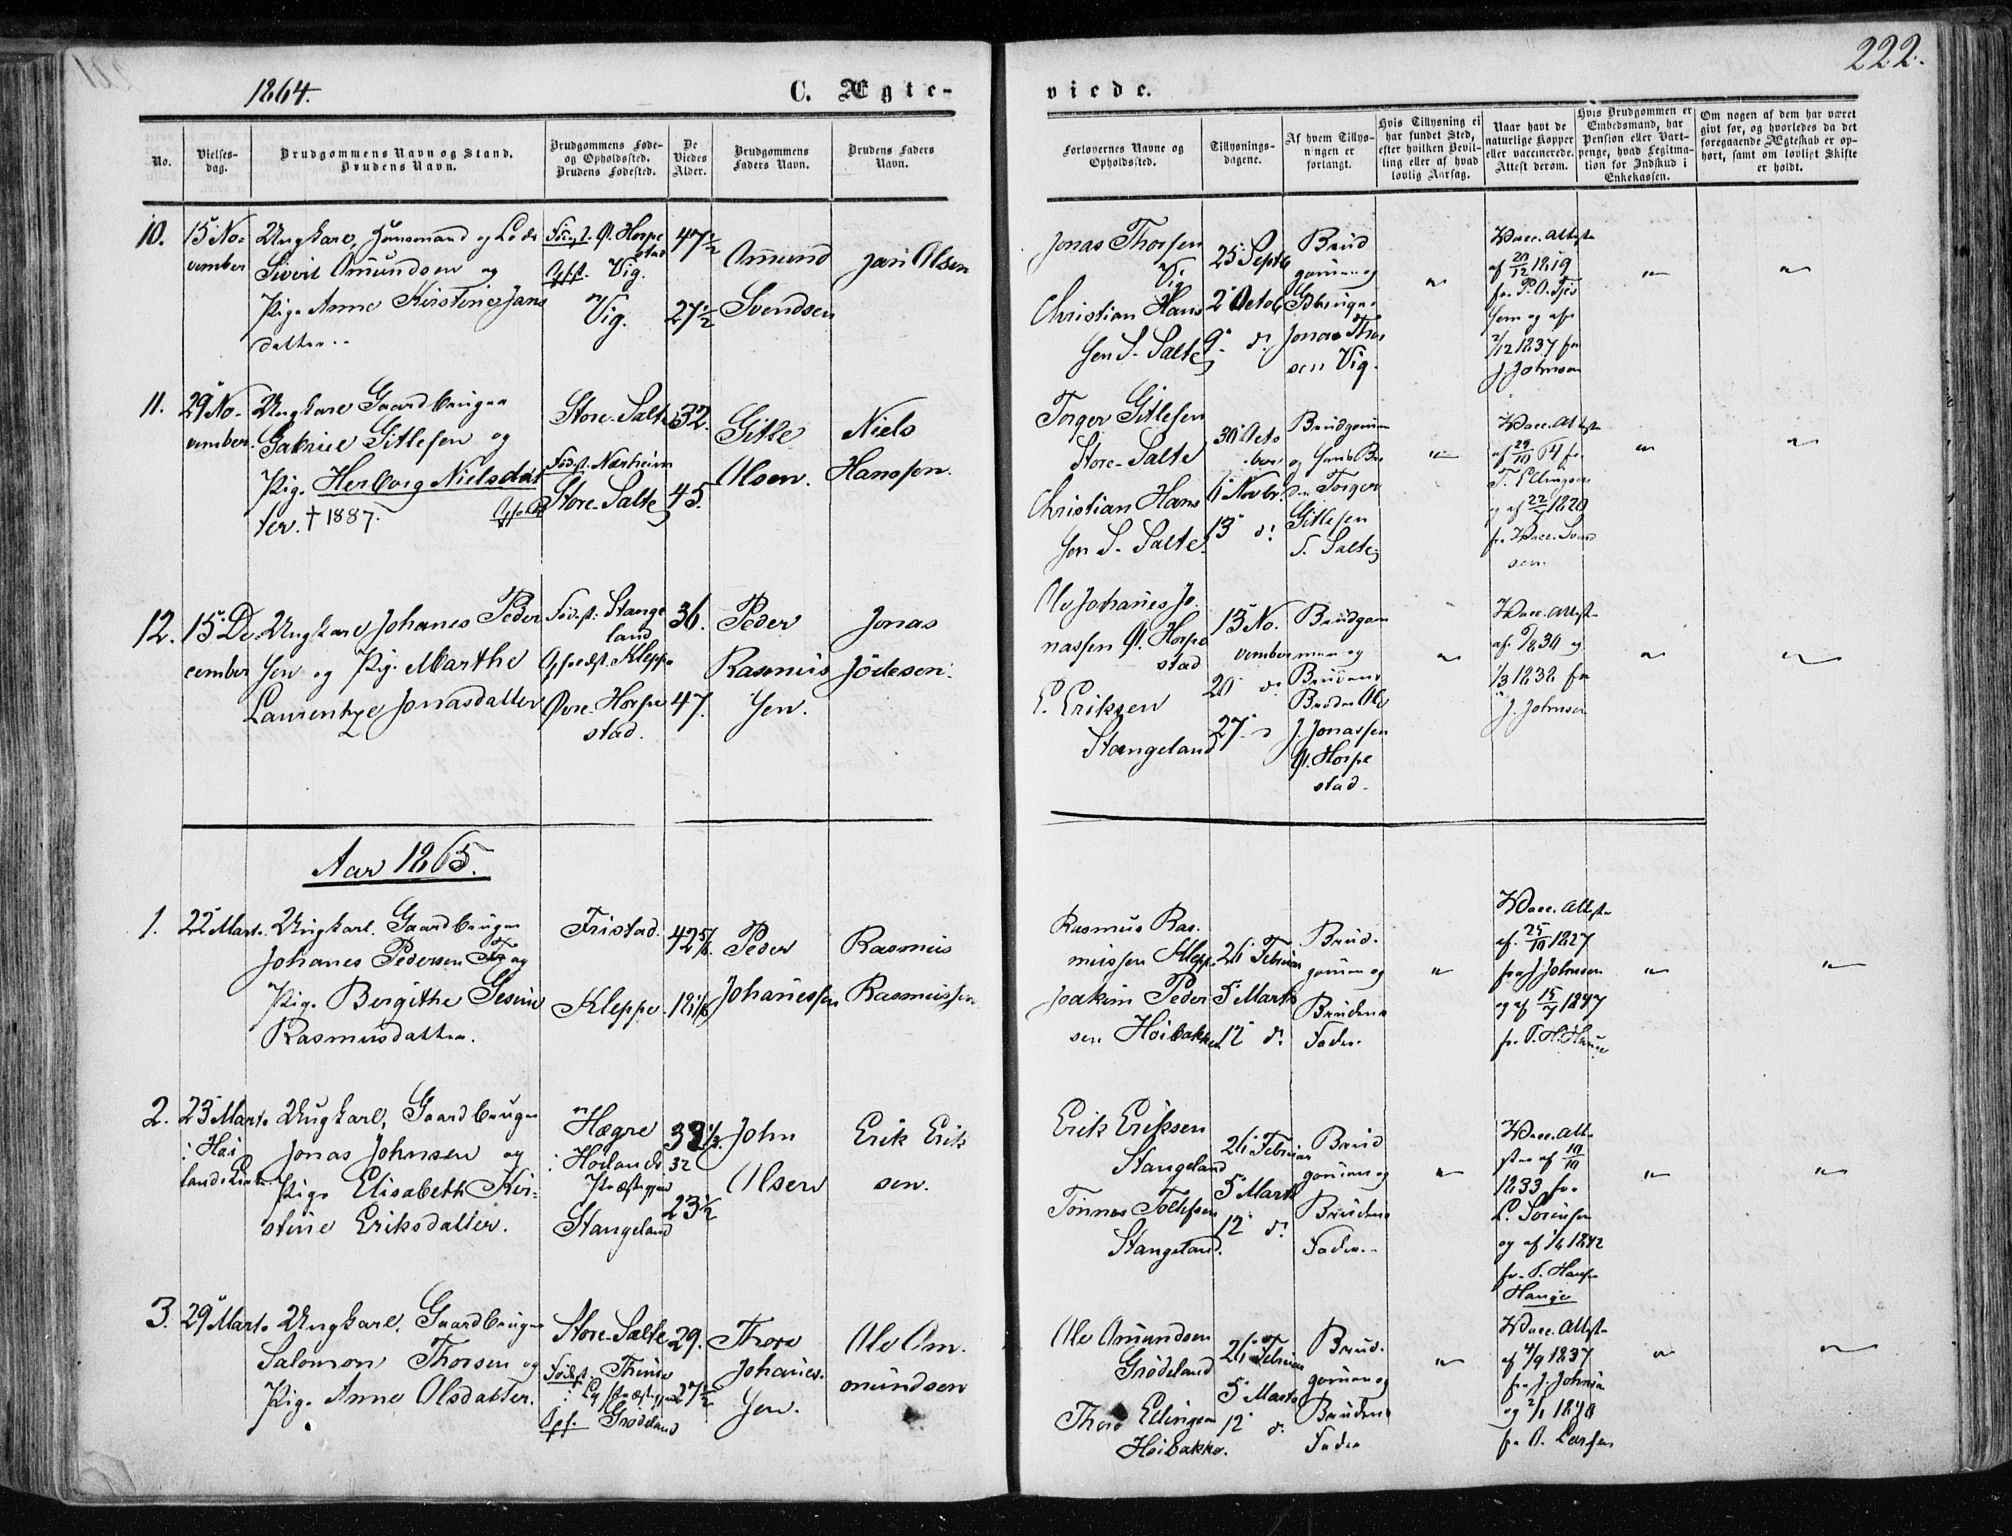 1864.
C. Ægte-
viede.
222.
No.
Vielses-
dag.
Brudgommens Navn og Stand.
Brudens Navn.
Brudgommens Føde-
og Opholdssted.
Brudens Fødested.
De
Viedes
Alder.
Brudgommens
Faders Navn.
Brudens Faders
Navn.
Forlovernes Navne og
Opholdssted.
Tillysnings-
dagene.
Af hvem Tillys-
ningen er
forlangt.
Hvis Tillysning ei
har fundet Sted,
efter hvilken Bevil-
ling eller af hvad
lovlig Aarsag.
Naar havt de
naturlige Kopper
eller vaccinerede.
Attest derom.
Hvis Brudgommen er
Embedsmand, har
Pension eller Vart-
penge, hvad Legitima-
tion for Indskud i
Enkekassen.
Om nogen af dem har været
givt før, og hvorledes da det
foregaaende Ægteskab er op-
hørt, samt om lovligt Skifte
er holdt.
10.
15 No-
vember
Ungkarl, Huusmand og
Sivert Amundsen og
Pige Anne Kirstine Jans
datter
Horpe
stad
Vig.
Vig.
47½
27½
Amund
Svendsen
Jan Olsen
Jonas Thorsen
Vig
Christian Hans
sen S. Salte
25 Septb
2 Octob
9 d.
Brud
gommen og
Jonas Thor
sen Vig.
Vacc. Attest
af 20/12 1819
og af
2/12 1837 fra
J. Johnsen
11.
29 No-
vember.
Ungkarl Gaardbruger
Gabriel Gitlesen og
Pige Herborg Nielsdat
ter. † 1887.
Store-Salte
Fødst. Nærheim
Store-Salte
32.
45.
Gitle
Olsen.
Niels
Hanssen.
Torger Gitlesen
Store-Salte
Christian Hans
sen S. Salte
30 Octo
ber
6 Novbr.
13 d.
Brudgommen
og hans Bro
der Torger
Gitlesen
S. Salte
Vacc. Attest
af 29/10 fra
T. Ellingsen
og af 22/7 1820
fra Vacc. Svend
sen.
12.
15 De
cember
Ungkarl Johanes Peder
sen og Pig. Marthe
Laurentze Jonasdatter
Fødest: Stange
land
Kleppe
Øvre-Horpe
stad.
36.
47.
Peder
Rasmus
sen.
Jonas
Jødesen.
Ole Johanes Jo
nassen Ø. Horpe
stad
E. Eriksen
Stangeland
13 No.
vember
20 d.
27.
Brudgom
men og
Brudens
Broder Ole
J. Jonassen
Ø. Horpe
stad.
Vacc. Attest
1/3 1832 fra
J. Johnsen
Aar 1865.
1.
22 Marts
Ungkarl. Gaardbruger
Johanes Pedersen og
Pige Bergithe Gesine
Rasmusdatter.
Fristad.
Kleppe
Peder
Johanessen
Rasmus
Rasmussen
Rasmus Ras.
mussen Klepp
Joakim Peder
sen Høibakken
26 Februar
5 Marts
12 d.
Brud.
gommen og
Brudens
Fader
Vacc. Attest
af 25/10 1827
fra J. Johnsen
og af 15/7 1847
fr. T. H. Hauge
2.
23 Marts
i Høi
lands Kirke
Ungkarl, Gaardbruger
Jonas Johnsen og
Pige Elisabeth Kir-
stine Eriksdatter.
Hægre
i Høilands
Præstegjeld
Stangeland
32
23½
John
Olsen
Erik Erik
sen.
Erik Eriksen
Stangeland
Tønnes Tollefsen
Stangeland.
26 Februar
5 Marts
12 d.
Brud
gommen og
Brudens
Fader
Vacc. Atte
ster af 10/10
1833 fr.
L. Sørensen
og af 1/6 1842
fr. T. Hansen
Hauge
3.
29 Marts
Ungkarl. Gaardbruger
Salomon Thorsen og
Pige Anne Olsdatter.
Store-Salte
Fødst. Thime
i Ly Præstegjeld
Opf. Grødeland
29.
27½
Thore
Johanes.
sen.
Ole Am.
mundsen
Ole Amundsen
Grødeland
Thore Ellingsen
Høibakke.
26 Februar
5 Marts
12 d.
Brud.
gommen og
Brudens
Fader
Vacc. Attest
af 4/9 1837
fra J. Johnsen
og 2/1 1840
fr. O. Larsen